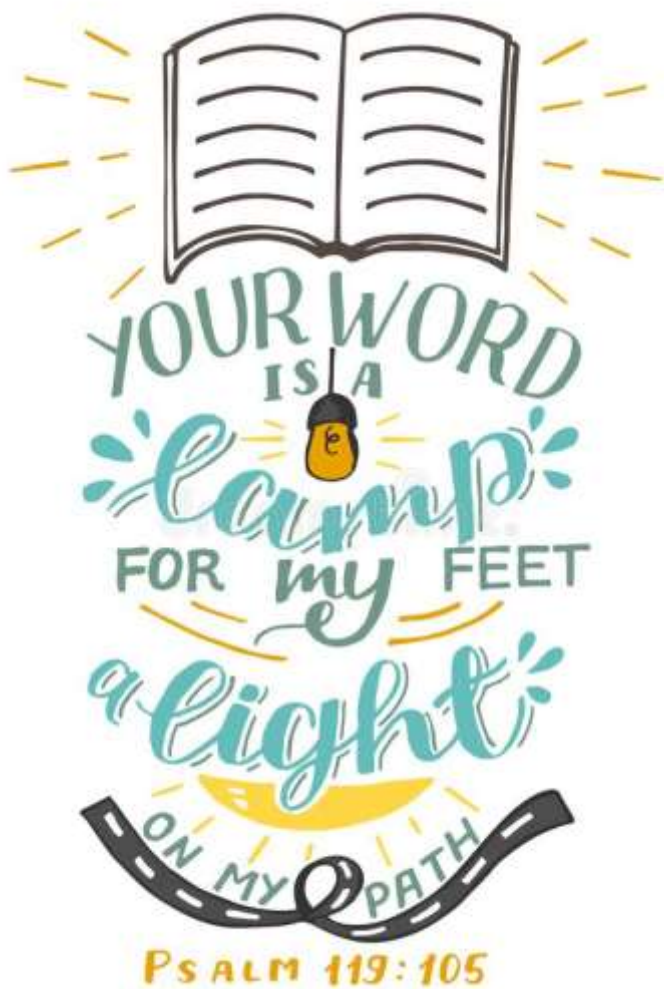 YOUR WORD
IS A
lamp
FOR my FEET
a light
ON MY PATH
PSALM 119:105